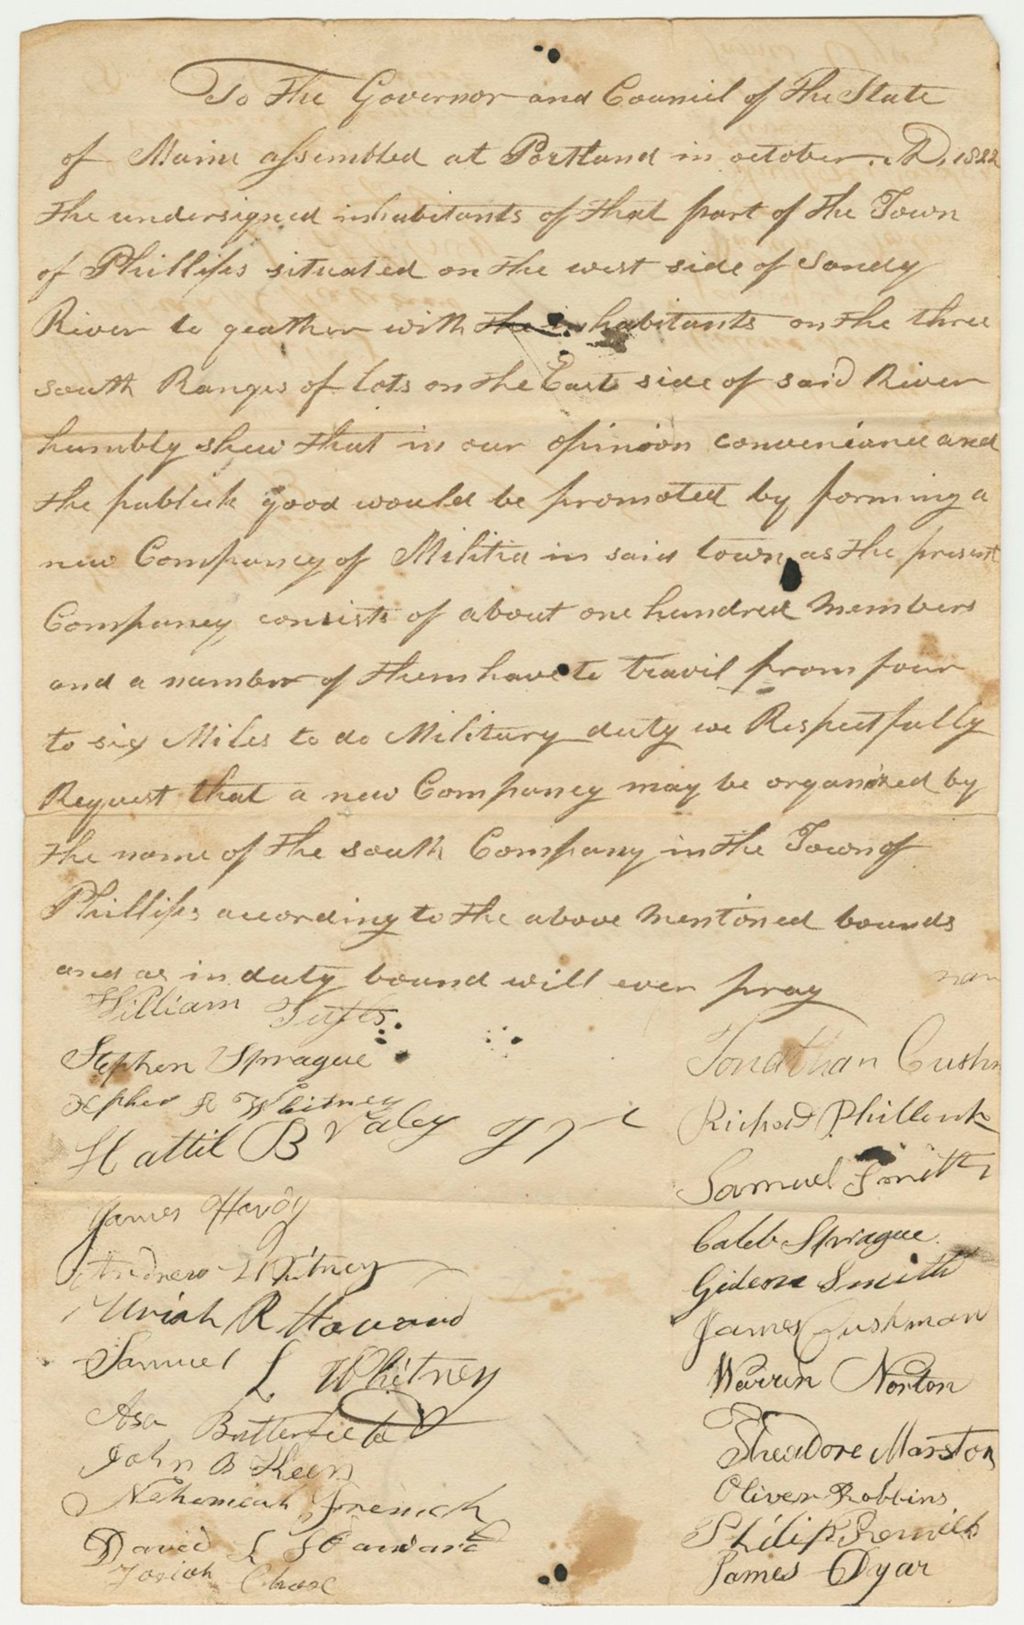 To the Governor and Council of the State
of Maine assembled at Portland in october. AD. 1822
the undersigned inhabitants of that part of the Town
of Phillips situated on the west side of Sandy
River to geather with the inhabitants on the three
south Ranges of lots on the East side of said River
humbly shew that in our opinion conveniance and
the publick good would be promoted by forming a
new Compancy of Militia in said town as the present
Compancy consists of about one hundred Members
and a number of them have to travil from four
to six Miles to do Military duty we Respectfully
Request that a new Compancy may be organized by
the name of the south Company in the Town of
Phillips according to the above mentioned bounds
and as in duty bound will ever pray
William Tufts
Stephen Sprague
Whitney
Hattil B Valey
James Hardy
Andrew Whitney
Uriah R Howard
Samuel L Whitney
Asa Butterfield
John B Keen
Nehemiah French
David L Howard
Josiah Chase
Jonathan Cushm
Richard Phillbrick
Samuel Smith
Caleb Sprague.
Gideon Smith
James Cushman
Warren Norton
Theadore Marston
Oliver Robbins
Philip
James Dyar